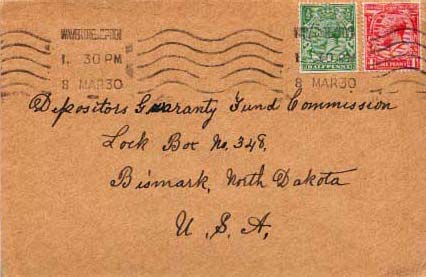 1. 30 PM
8 MAR 30
8 MAR 30
HALFPENNY
Depositors Guaranty Fund Commission
Lock Box No. 348,
Bismark, North Dakota
U. S. A,